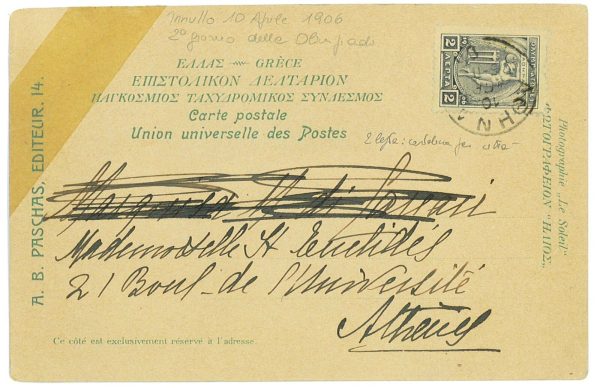 Annullo 10 Aprile 1906
2° giorno della Olimpiade
ΕΛΛΑΣ – GRÈCE
ΕΠΙΣΤΟΛΙΚΟΝ ΔΕΛΤΑΡΙΟΝ
ΠΑΓΚΟΣΜΙΟΣ ΤΑΧΥΔΡΟΜΙΚΟΣ ΣΥΝΔΕΣΜΟΣ
Carte postale
Union universelle des Postes
2 ΛΕΠΤΑ 2
ΑΘΗΝΑΙ
10
2 lepta: cartolina per
A. B. PASCHAS, EDITEUR. 14.
Photographie „Le Soleil"
ΦΩΤΟΓΡΑΦΕΙΟΝ "ΗΛΙΟΣ„
di
Mademoiselle St
21 Boul. de l'Université
Athènes
Ce côté est exclusivement réservé à l'adresse.